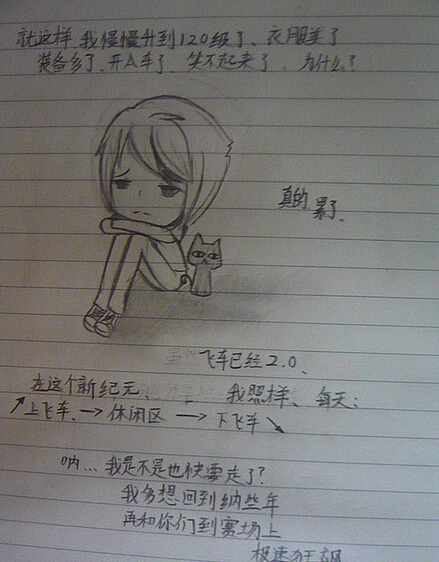 就这样 我慢慢升到120级了、衣服美了
装备多了、开A车了、笑不起来了、为什么?
真的
累了、
虽然飞车已经2.0、
在这个新纪元、我照样、每天:
↗上飞车、→休闲区→下飞车↘
呐...我是不是也快要走了?
我多想回到纳些年
再和你们到赛场上
极速狂飙